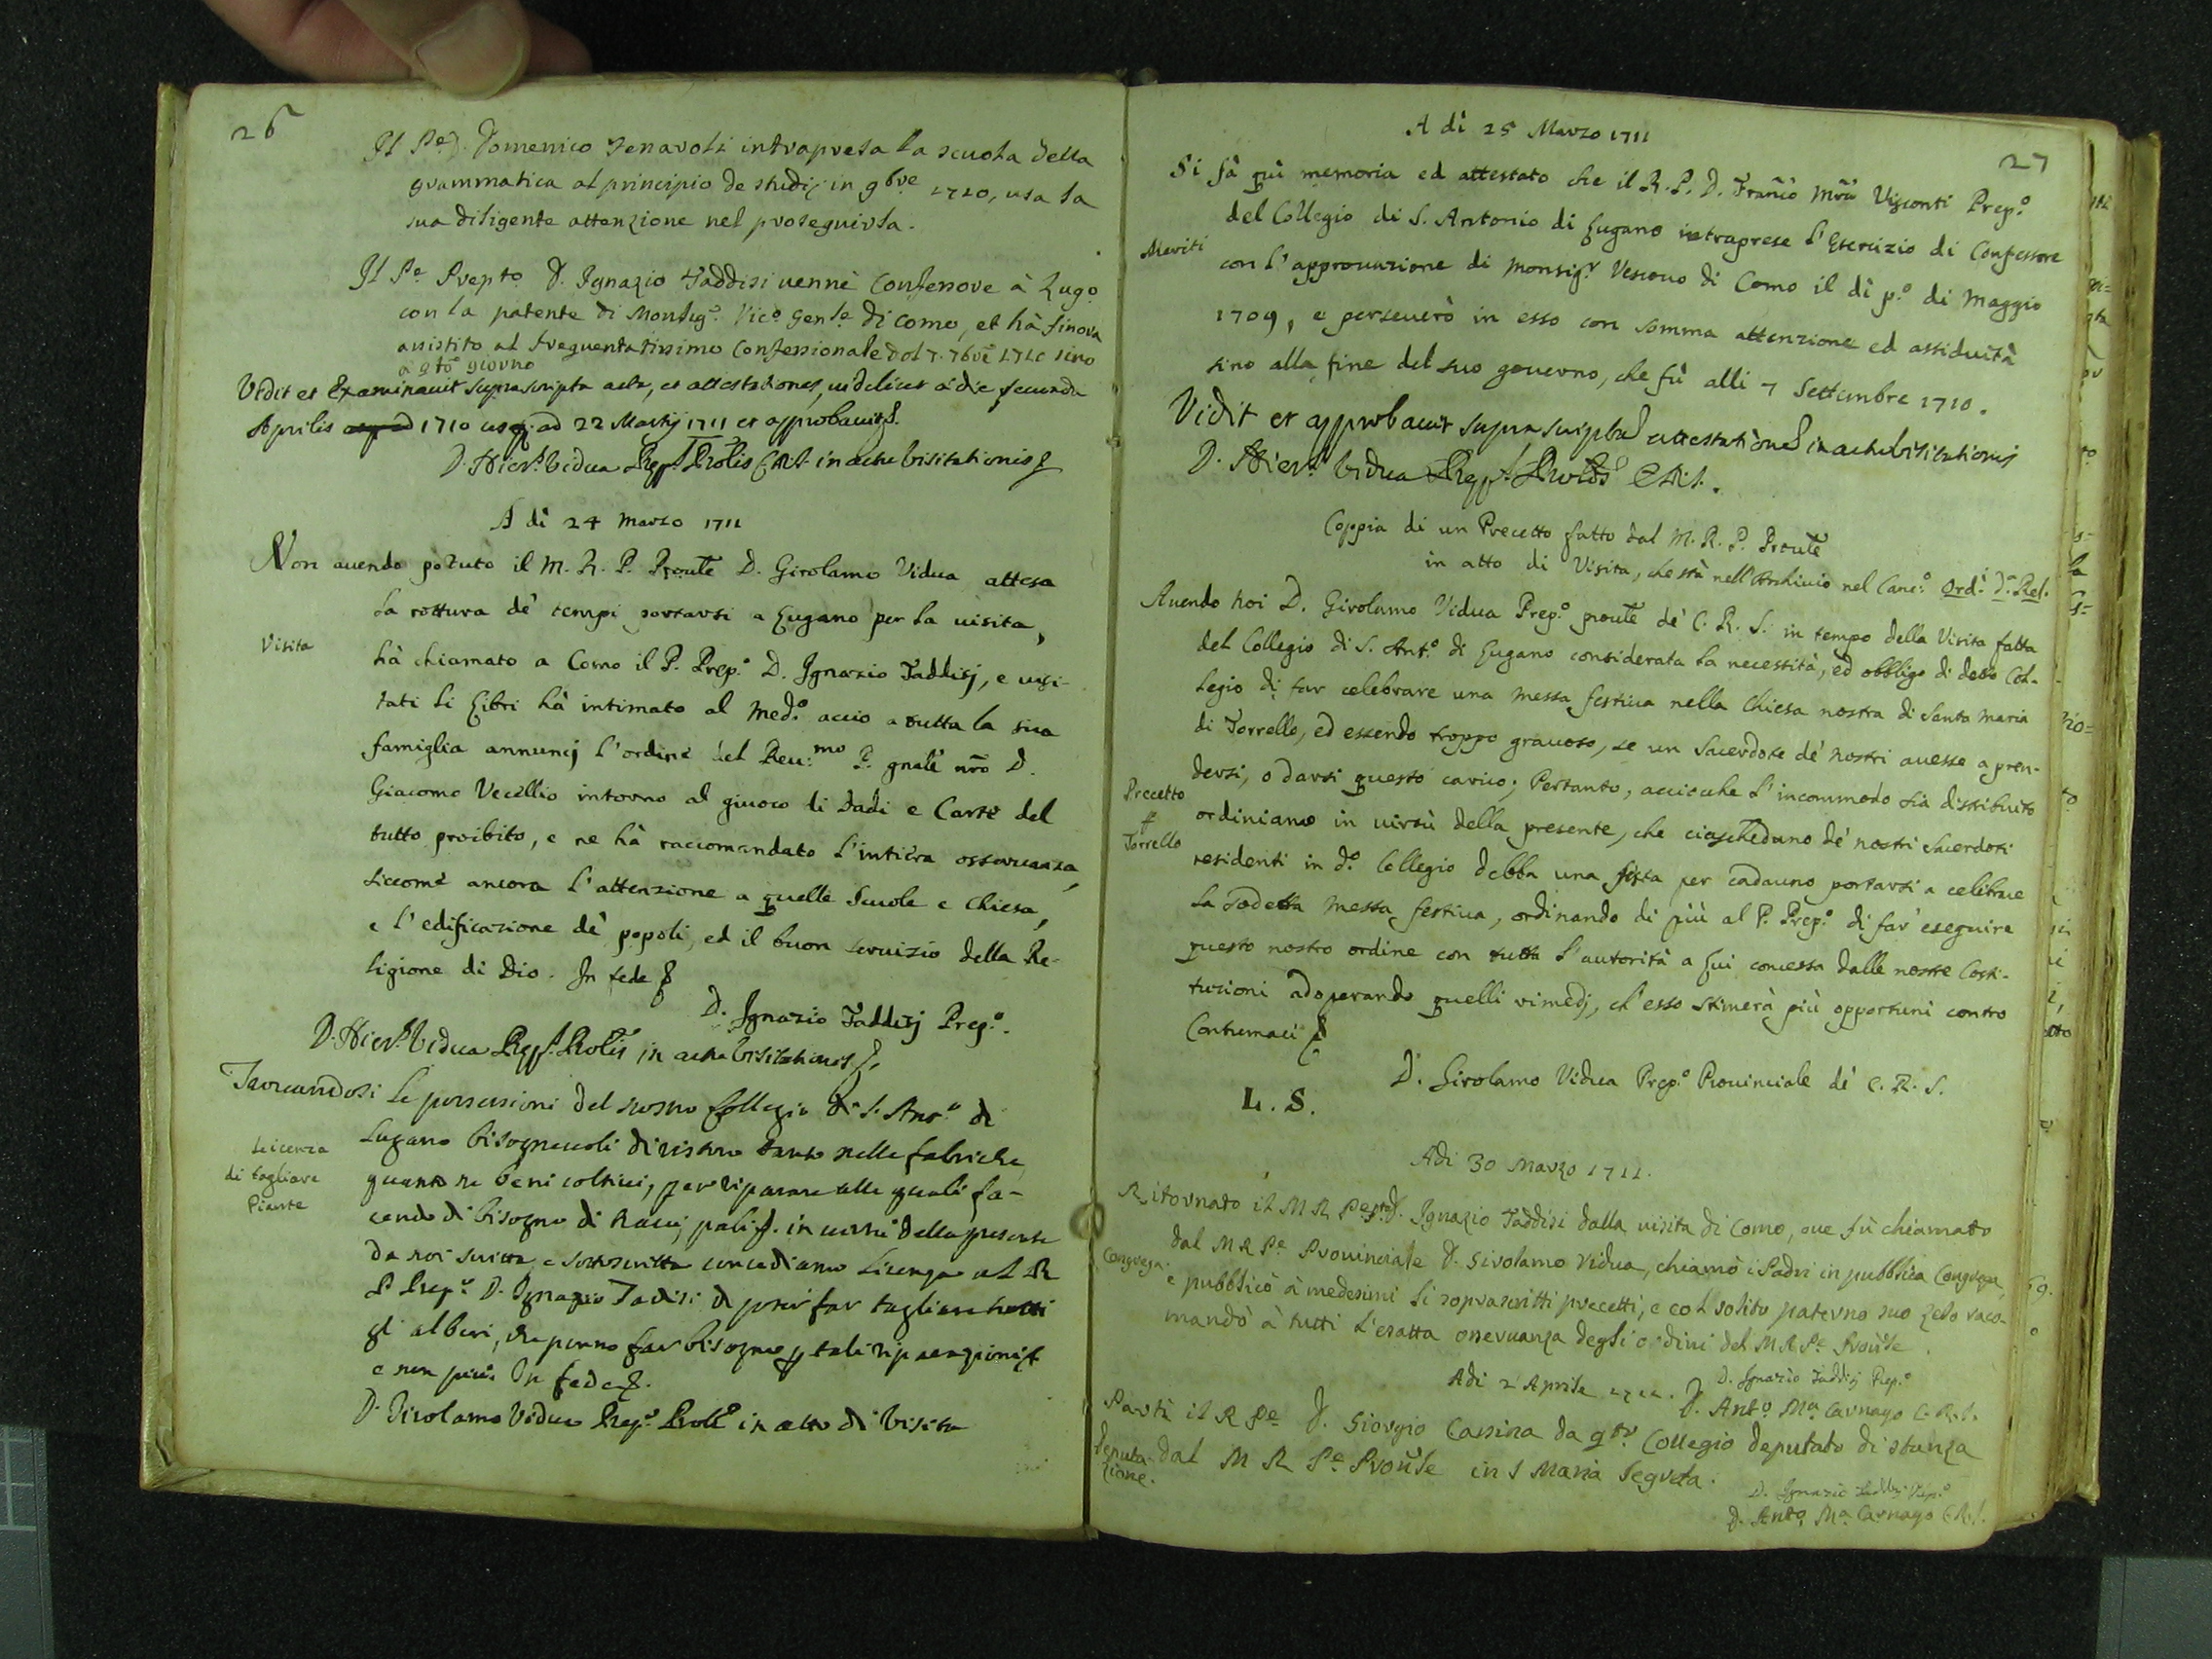 26
Il Pe D. Domenico Tenaroli intrapresa la scuola della
grammatica al principio de studij in 9bre 1710, usa la
sua diligente attenzione nel proseguirla.
Il Pe Prepto D. Ignazio Taddisi venne Confessore à Lugo
con la patente di Monsigr. Vico Genle di Como, et hà finora
assistito al frequentatissimo Confessionale dal 7. 7bre 1710 sino
à qto giorno
Vidit et Examinavit suprascripta acta, et attestationes, videlicet a die secunda
Aprilis 1710 usq. ad 22 Martij 1711 et approbavit
D. Hier. Vidua Prep. Prolis C.R.S. in actu visitationis
A di 24 Marzo 1711
Non avendo potuto il M. R. P. Pronle D. Girolamo Vidua attesa
la rottura dè tempi portarsi a Lugano per la visita,
Visita
hà chiamato a Como il P. Prep.o D. Ignazio Taddisj, e visi-
tati li Libri hà intimato al Med.o accio a tutta la sua
famiglia annuncj l'ordine del Reu.mo P. gnāle nro D.
Giacomo Vecellio intorno al giuoco di Dadi e Carte del
tutto proibito, e ne hà raccomandato l'intiera osservanza,
siccome ancora l'attenzione a quelle Scuole e Chiesa,
e l'edificazione dè popoli, ed il buon servizio della Re-
ligione di Dio. In fede
D. Ignazio Taddisj Prep.o.
D. Hier. Vidua Prep. Prolis in actu visitationis
Trovandosi le possessioni del nostro Collegio di S. Ant.o di
Lugano bisognevoli di ristoro tanto nelle fabriche,
Licenza
di tagliare
Piante
quanto ne beni coltivi, per riparare alle quali fa-
cendo di bisogno di travi, pali in virtù della presente
da noi scritta, e sottoscritta concediamo Licenza al R
P Prep.o D. Ignazio Tadisi di poter far tagliare tutti
gl alberi, che ponno far bisogno p tali riparazioni
e non più. In fede.
D. Girolamo Vidua Prep.o Prole in atto di Visita
27
A di 25 Marzo 1711
Si fà quì memoria ed attestato che il R. P. D. Franco Mria Visconti Prep.o
del Collegio di S. Antonio di Lugano intraprese l'Esercizio di Confessore
Meriti
con l'approvazione di Monsig.r Vescovo di Como il di p.o di Maggio
1709, e perseverò in esso con somma attenzione ed assiduità
sino alla fine del suo governo, che fù alli 7 Settembre 1710.
Vidit et approbavit suprascriptas attestationes in actu visitationis
D. Hier. Vidua Prep. Prolis C.R.S.
Coppia di un Precetto fatto dal M. R. P. Pronle
in atto di Visita, che stà nell'Archivio nel Canc.o Ord.i D.a Rel.
Avendo Noi D. Girolamo Vidua Prep.o pronle dè C. R. S. in tempo della Visita fatta
del Collegio di S. Ant.o di Lugano considerata la necessità, ed obbligo di detto Col-
legio di far celebrare una Messa festiva nella Chiesa nostra di Santa Maria
di Torrello, ed essendo troppo gravoso, se un Sacerdote dè nostri avesse a pren-
dersi, o darsi questo carico; Pertanto, accioche l'incommodo sia distribuito
Precetto
p
Torrello
ordiniamo in virtù della presente, che ciascheduno dè nostri Sacerdoti
residenti in d.o Collegio debba una festa per cadauno portarsi a celebrare
la sodetta Messa festiva, ordinando di più al P. Prep.o di far eseguire
questo nostro ordine con tutta l'autorità a Lui concessa dalle nostre Costi-
tuzioni adoperando quelli rimedj, ch'esso stimerà più opportuni contro
Contumaci
D. Girolamo Vidua Prep.o Provinciale dè C. R. S.
L. S.
Adi 30 Marzo 1711.
Ritornato il M R Pe pto D. Ignazio Taddisi dalla visita di Como, ove fù chiamato
dal M R Pe Provinciale D. Girolamo Vidua, chiamò i Padri in pubblica Congrega,
Congrega.
e pubblicò à medesimi li soprascritti precetti, e col solito paterno suo zelo raco-
mandò à tutti l'esatta osservanza degli ordini del M R Pe Pronle.
D. Ignazio Taddisj Prep.o
Adi 2 Aprile 1711. D. Anto Ma Carnago C.R.S.
Partì il R Pe D. Giorgio Cassina da qto Collegio deputato di stanza
Deputa-
zione.
dal M R Pe Pronle in S Maria Segreta.
D. Ignazio Taddisj Prep.o
D. Anto Ma Carnago C.R.S.